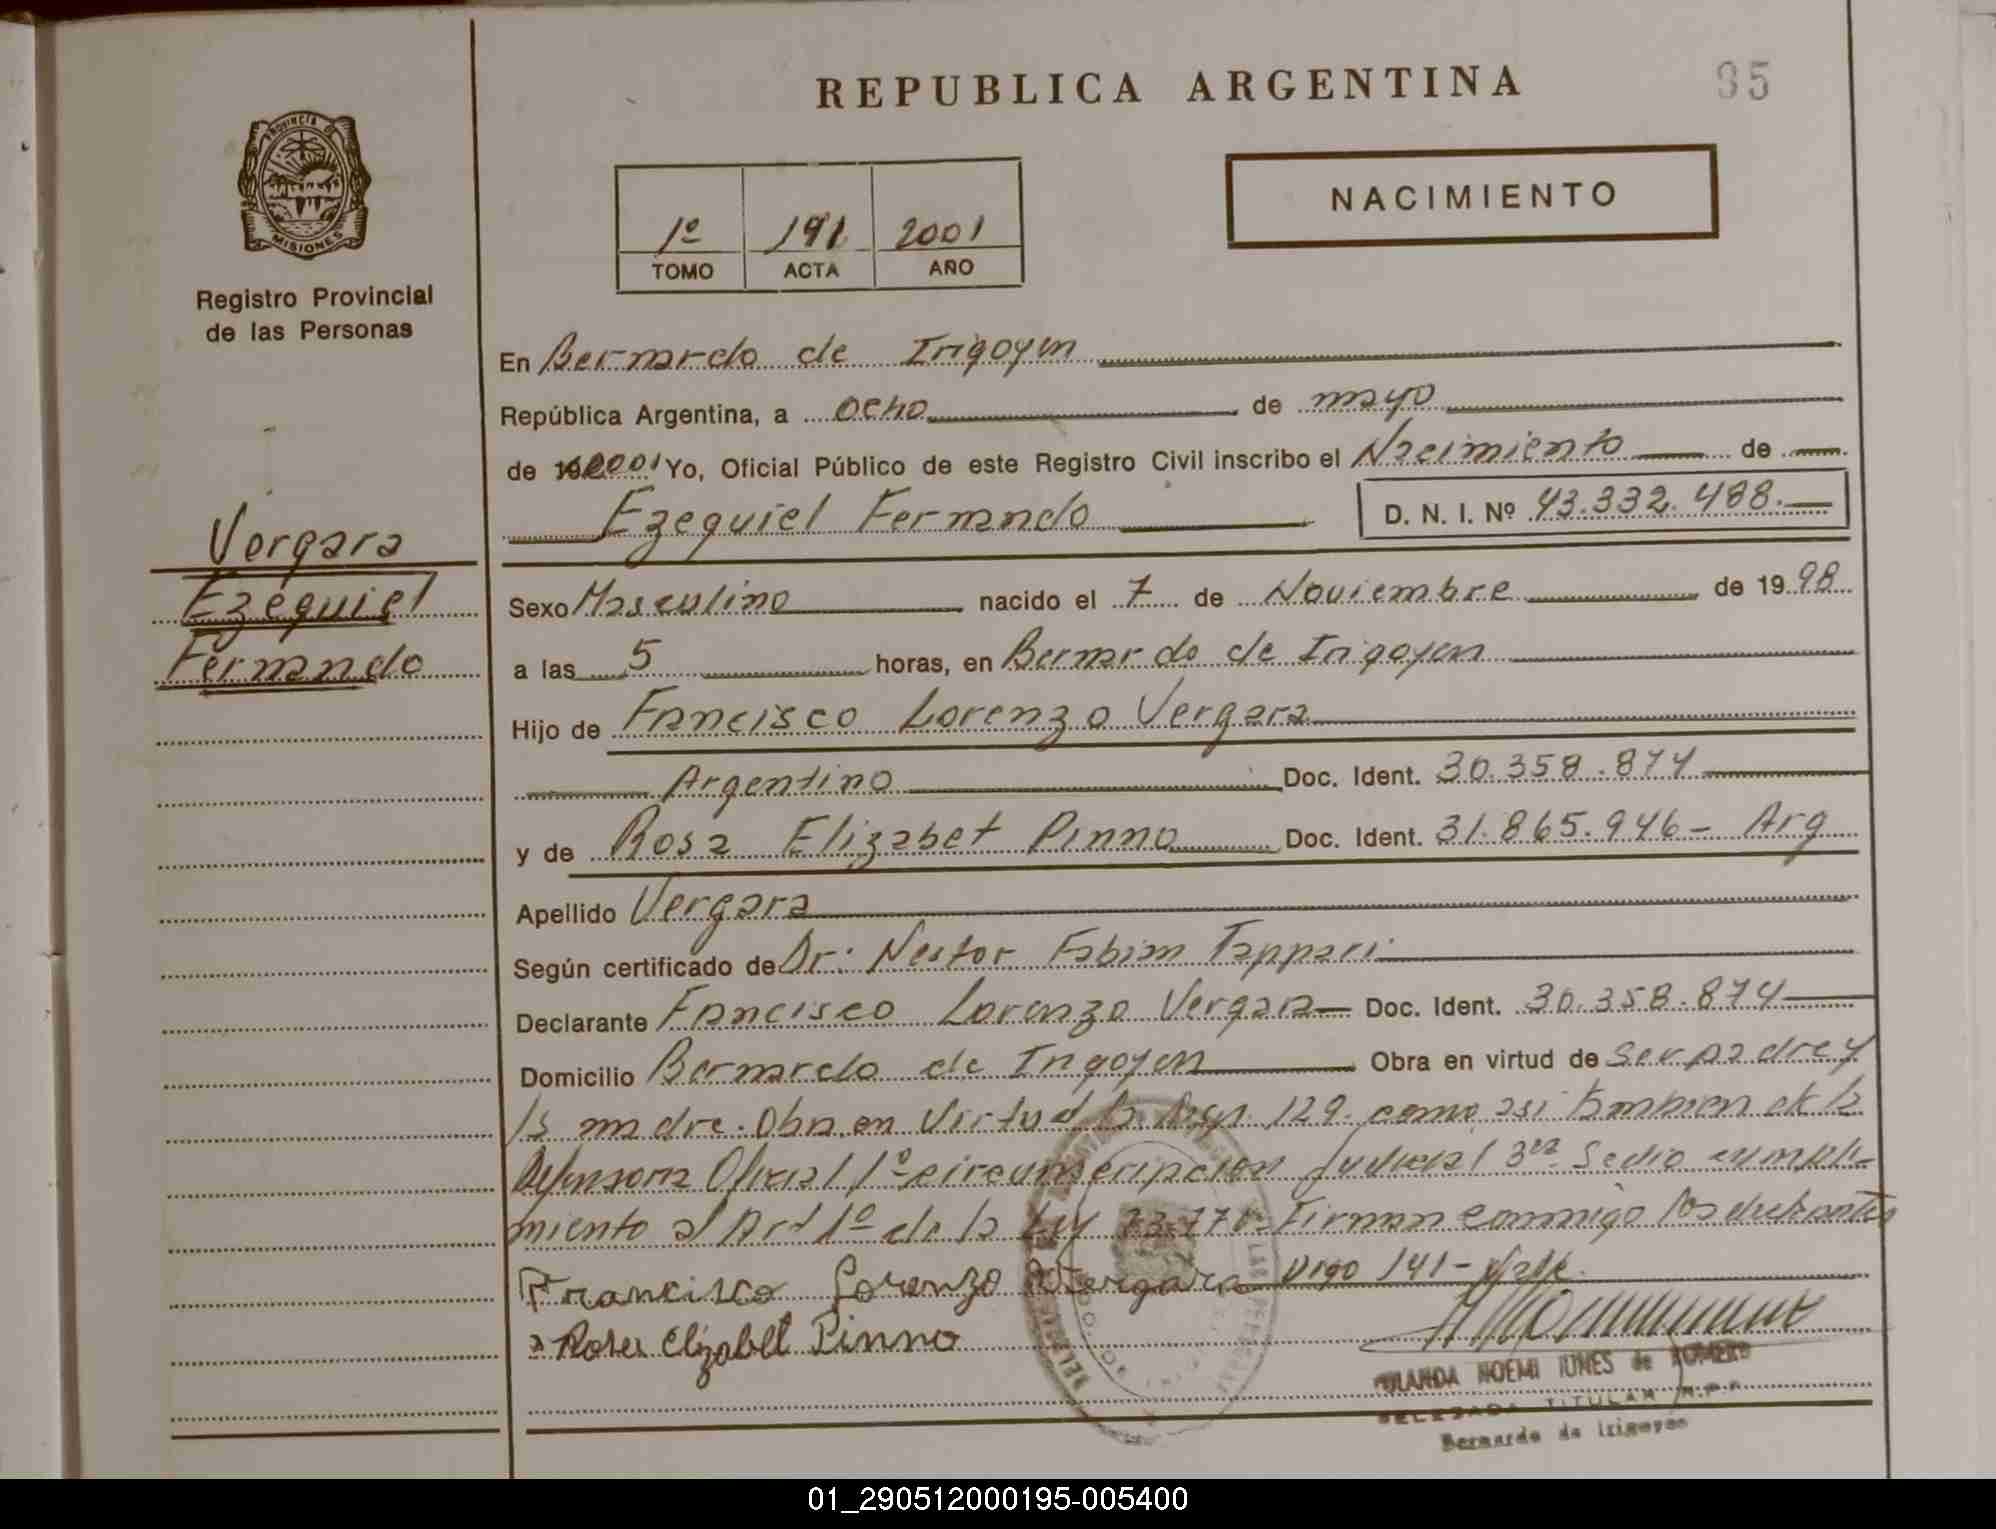 REPUBLICA ARGENTINA
35
PROVINCIA DE
MISIONES
Registro Provincial
de las Personas
1º 191 2001
TOMO ACTA AÑO
NACIMIENTO
En Bernardo de Irigoyen
República Argentina, a ocho de mayo
de 2001 Yo, Oficial Público de este Registro Civil inscribo el Nacimiento de
Ezequiel Fernando D. N. I. Nº 43.332.488.
Vergara
Ezequiel
Fernando
Sexo Masculino nacido el 7 de Noviembre de 1998
a las 5 horas, en Bernardo de Irigoyen
Hijo de Francisco Lorenzo Vergara
Argentino Doc. Ident. 30.358.874
y de Rosa Elizabet Pinno Doc. Ident. 31.865.946 - Arg
Apellido Vergara
Según certificado de Dr: Nestor Fabian Tappari
Declarante Francisco Lorenzo Vergara Doc. Ident. 30.358.874
Domicilio Bernardo de Irigoyen Obra en virtud de ser padre y
la madre. Obra en virtud 129. como asi tambien de la
Defensoria Oficial 1º circunscripcion Judicial 3ra
miento al Art 1º de la Ley Firman conmigo los declarantes
Francisco Lorenzo Vergara Digo 141 - Vale.
Rosa Elizabet Pinno
NOEMI de ROMERO
DELEGADA TITULAR R.P.P.
Bernardo de Irigoyen
01_290512000195-005400